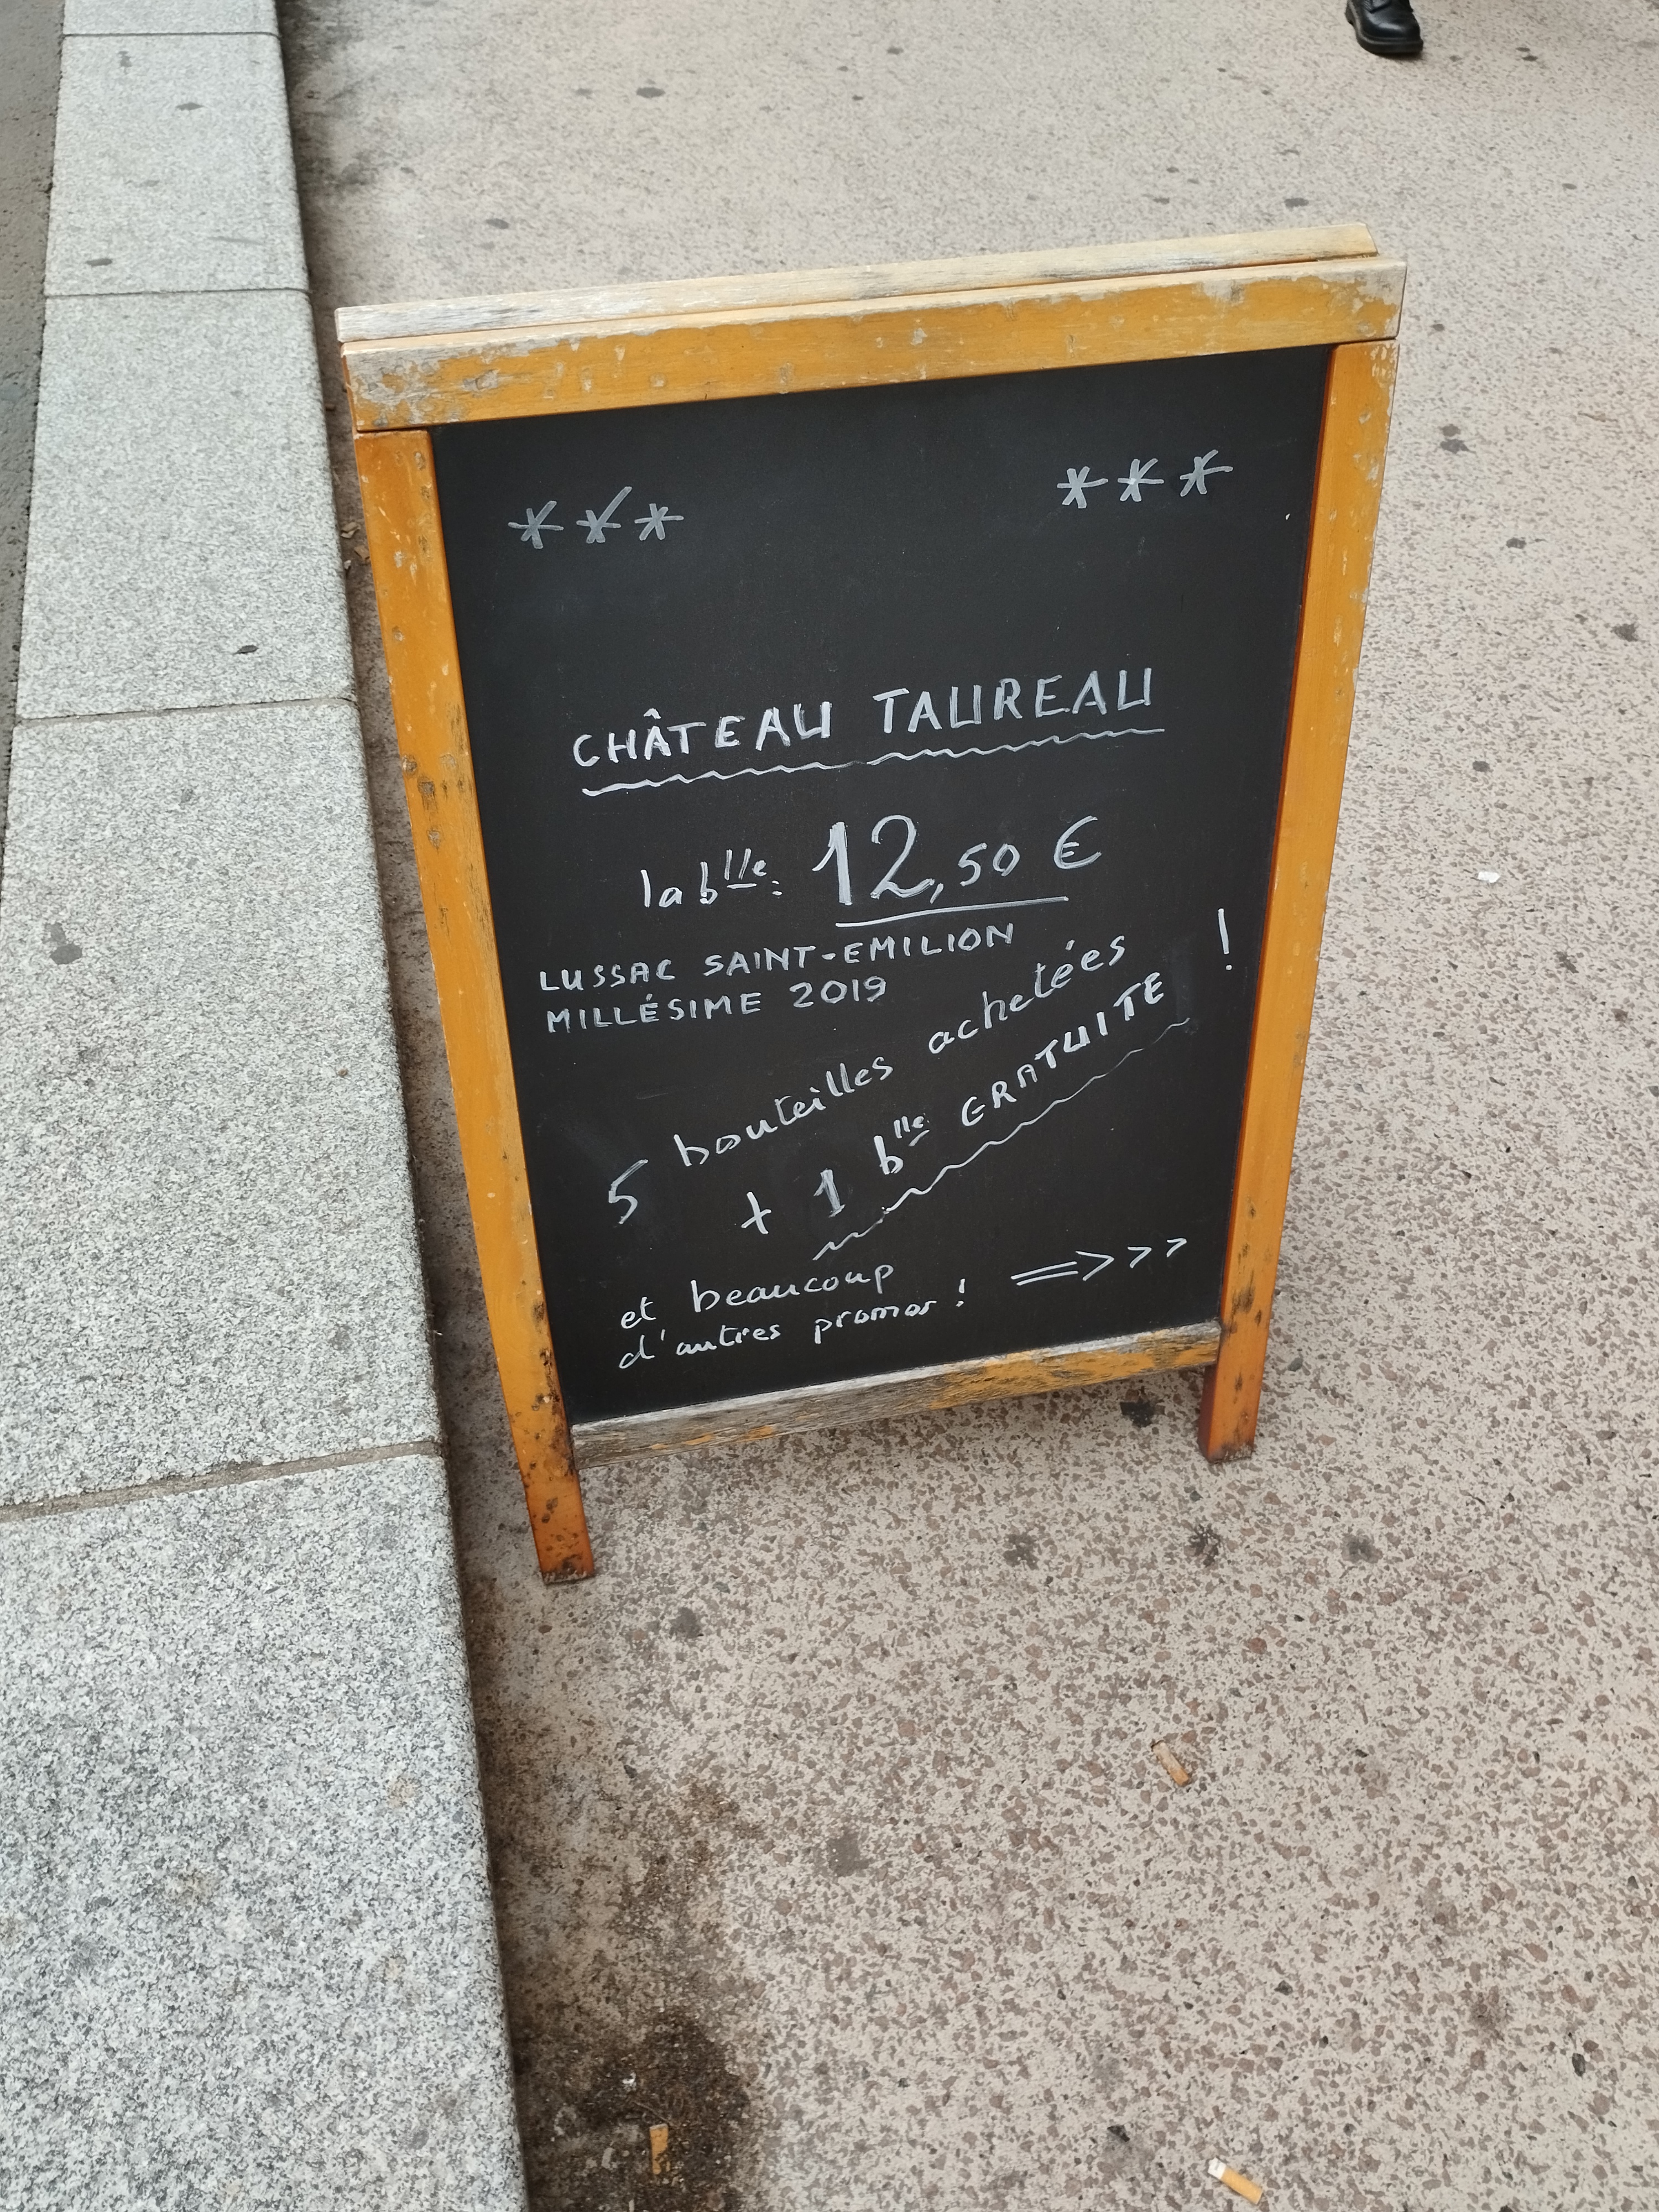 *** ***
CHÂTEAU TAUREAU
la blle: 12,50 €
LUSSAC SAINT-EMILION
MILLÉSIME 2019
5 bouteilles achetées !
+ 1 blle GRATUITE
et beaucoup
d'autres promos ! =>>>